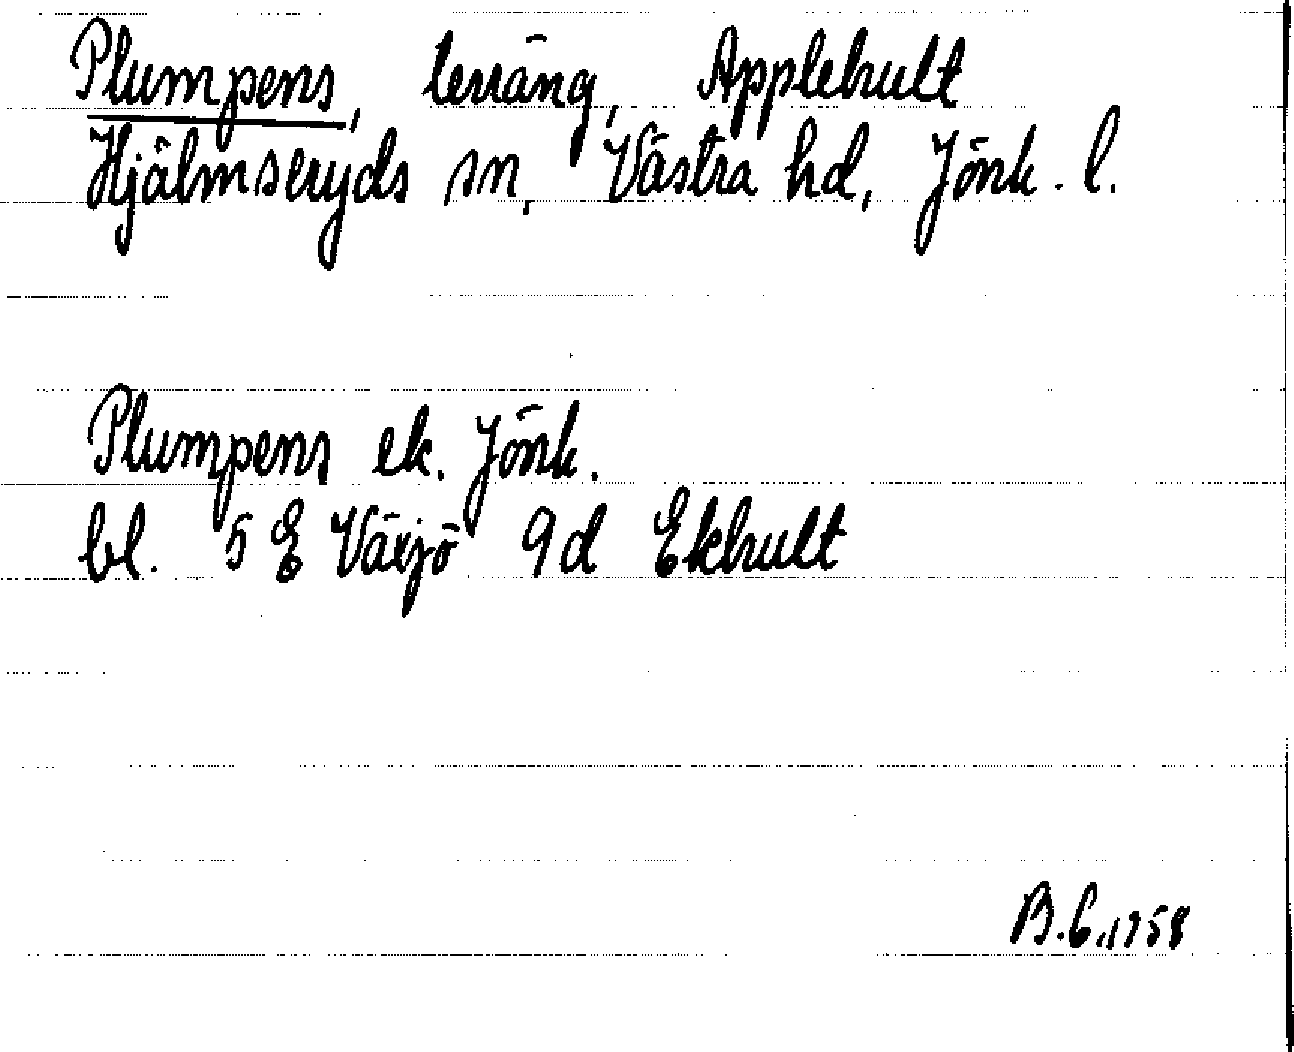 Plumpens, terräng, Applehult
Hjälmseryds sn, Västra hd, Jönk. l.
Plumpens ek. Jönk.
bl. 5 E Växjö 9d Ekhult
B.C., 1958